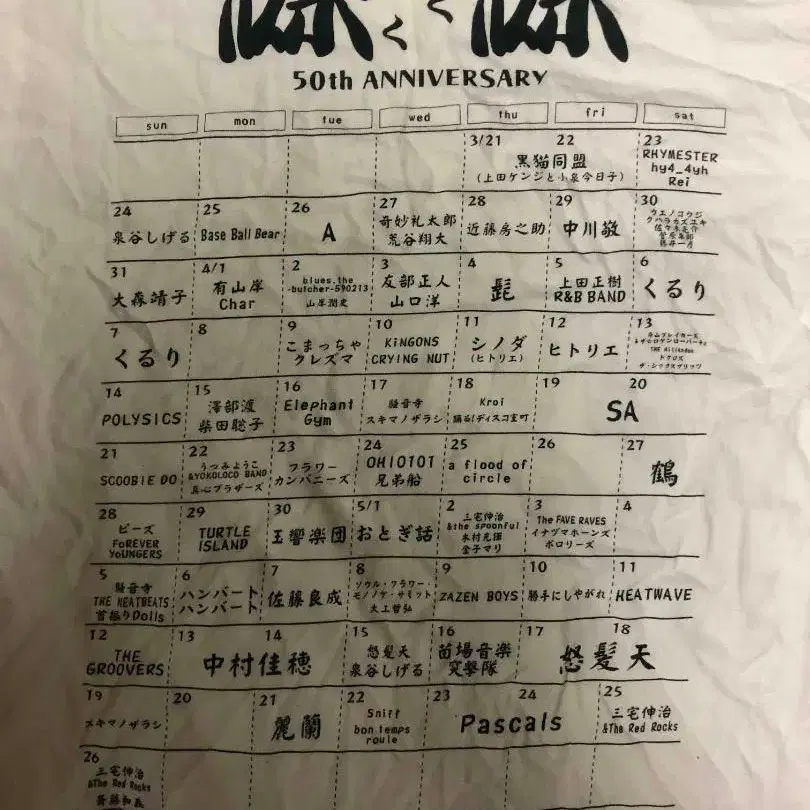 50th ANNIVERSARY
sun mon tue wed thu fri sat
3/21 22
黒猫同盟
(上田ケンジと小泉今日子)
23
RHYMESTER
hy4_4yh
Rei
24
泉谷しげる
25
Base Ball Bear
26
A
27
奇妙礼太郎
荒谷翔大
28
近藤房之助
29
中川敬
30
ウエノコウジ
クハラカズユキ
佐々木亮介
藤井一彦
31
大森靖子
4/1
有山岸
Char
2
blues.the
-butcher-590213
山岸潤史
3
友部正人
山口洋
4
髭
5
上田正樹
R&B BAND
6
くるり
7
くるり
8
9
こまっちゃ
クレズマ
10
KiNGONS
CRYING NUT
11
シノダ
(ヒトリエ)
12
ヒトリエ
13
ザ・シックスブリッツ
14
POLYSICS
15
澤部渡
柴田聡子
16
Elephant
Gym
17
騒音寺
スキマノザラシ
18
Kroi
踊る!ディスコ室町
19 20
SA
21
SCOOBIE DO
22
うつみようこ
&YOKOLOCO BAND
真心ブラザーズ
23
フラワー
カンパニーズ
24
OHIO101
兄弟船
25
a flood of
circle
26
27
鶴
28
ピーズ
FoREVER
YoUNGERS
29
TURTLE
ISLAND
30
玉響楽団
5/1
おとぎ話
2
三宅伸治
&the spoonful
木村充揮
金子マリ
3
The FAVE RAVES
イナヅマホーンズ
ポロリーズ
4
5
騒音寺
THE NEATBEATS
首振りDolls
6
ハンバート
ハンバート
7
佐藤良成
8
ソウル・フラワー・
モノノケ・サミット
大工哲弘
9
ZAZEN BOYS
10
勝手にしやがれ
11
HEATWAVE
12
THE
GROOVERS
13 14
中村佳穂
15
怒髪天
泉谷しげる
16
苗場音楽
突撃隊
17 18
怒髪天
19
スキマノザラシ
20
21
麗蘭
22
Sniff
bon temps
roule
23 24
Pascals
25
三宅伸治
&The Red Rocks
26
三宅伸治
&The Red Rocks
斉藤和義